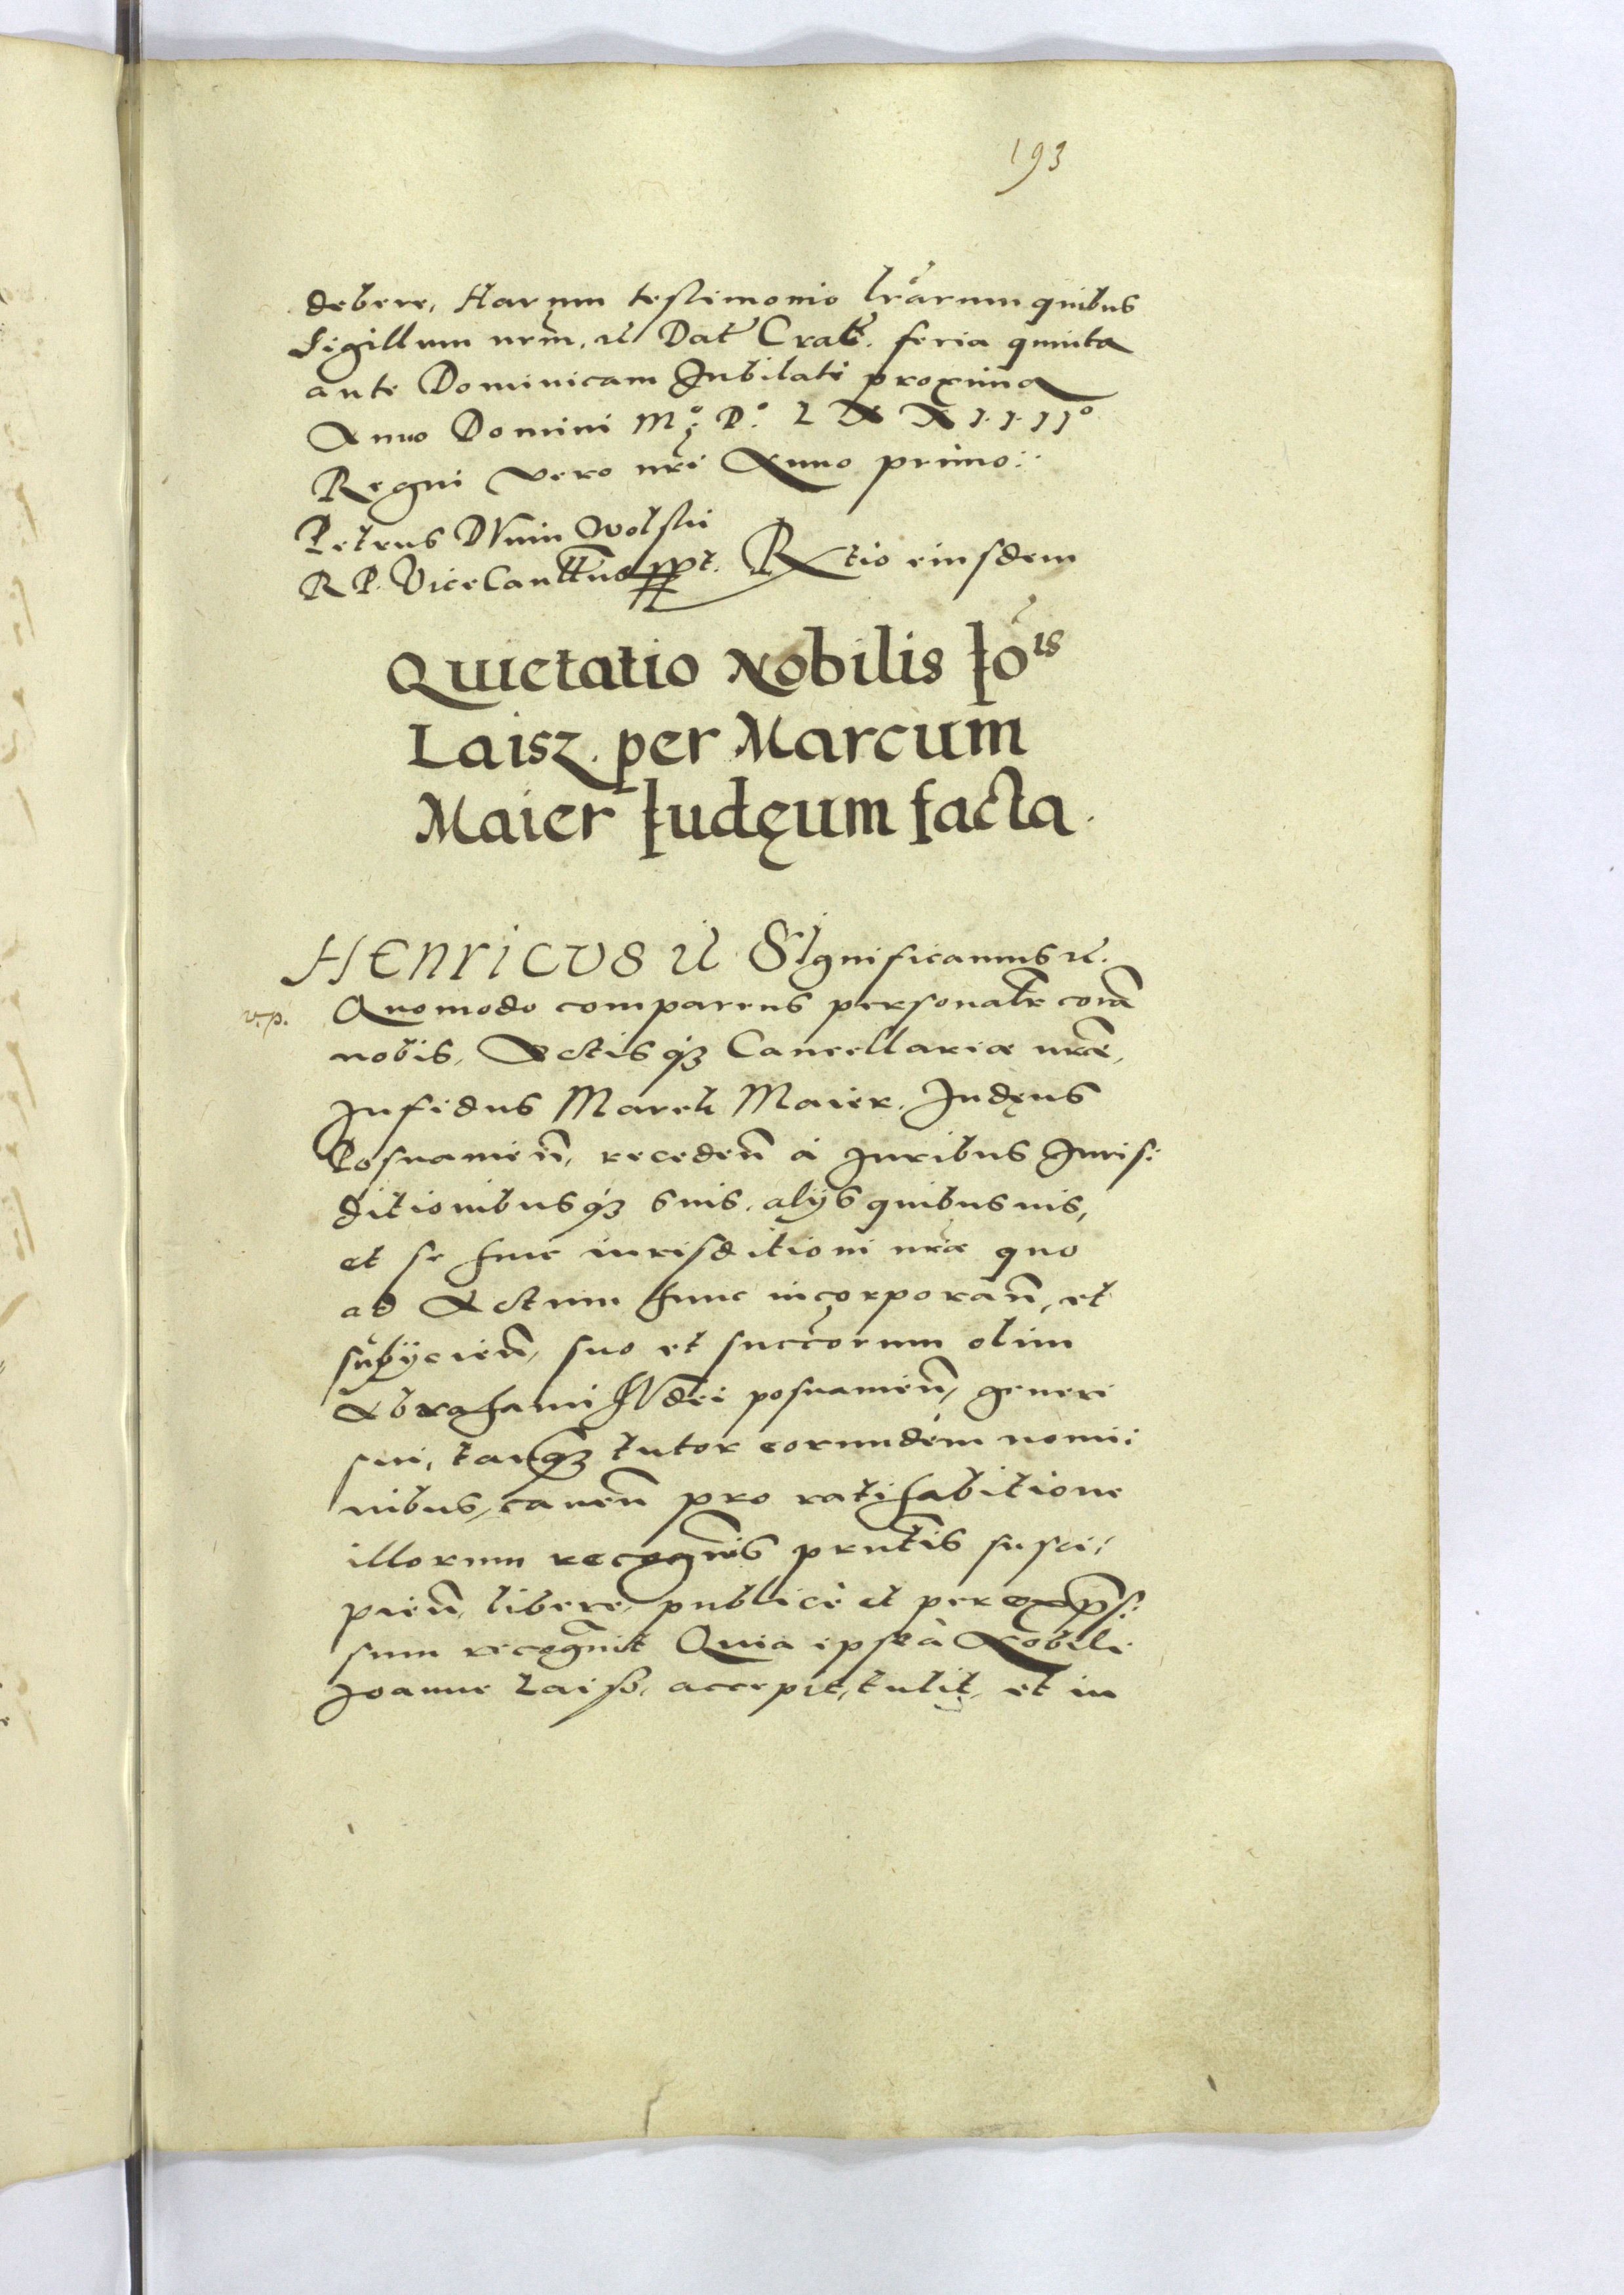 193
debere, Harum testimonio lrãrum quibus
Sigillum nrm̃. etc̃ Dat̃ Crac̃. feria quinta
ante Dominicam Jubilate proxima
Anno Domini M.º D.º LXXIIIIº
Regni vero nrĩ Anno primo:
Petrus DVnin Wolski
R P. ViceCancell̃us sspt. Rtio eiusdem
Quietatio Nobilis Iõis
Laisz. per Marcum
Maier Iudęum facta.
HENRICVS etc̃ SIgnificamus etc̃.
v.p. Quomodo comparens personalr̃ corã
nobis, Actisq3 Cancellariæ nræ̃,
Infidus March Maier. Judęus
Posnamien̄, receden̄ à Juribus Juris:
ditionibusq3 suis, alijs quibusuis,
et se huic iurisditioni nræ̃ quo
ad Actum hunc incorporan̄, et
subijcien̄, suo et succ̃orum olim
Abrahami JVdei posnamien̄, generi
sui, tanq3 tutor eorundem nomi:
nibus, caven̄ pro ratihabitione
illorum recogn̄is prñtis susci:
pien̄, libere, publicè et per exp̄s:
sum recogn̄it Quia ipse à Nobili
Joanne Laisz, accepit, tulit, et in